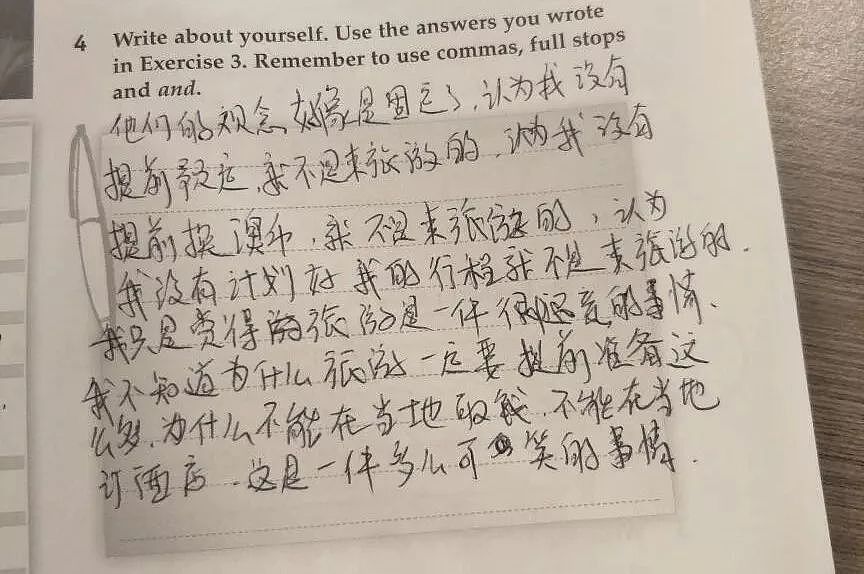 4 Write about yourself. Use the answers you wrote
in Exercise 3. Remember to use commas, full stops
and and.
他们的观念好像是固定了,认为我没有
提前预定,就不是来旅游的,认为我没有
提前换澳币,就不是来旅游的,认为
我没有计划好我的行程就不是来旅游的.
我只是觉得旅游是一件很随意的事情、
我不知道为什么旅游一定要提前准备这
么多,为什么不能在当地取钱,不能在当地
订酒店,这是一件多么可笑的事情.